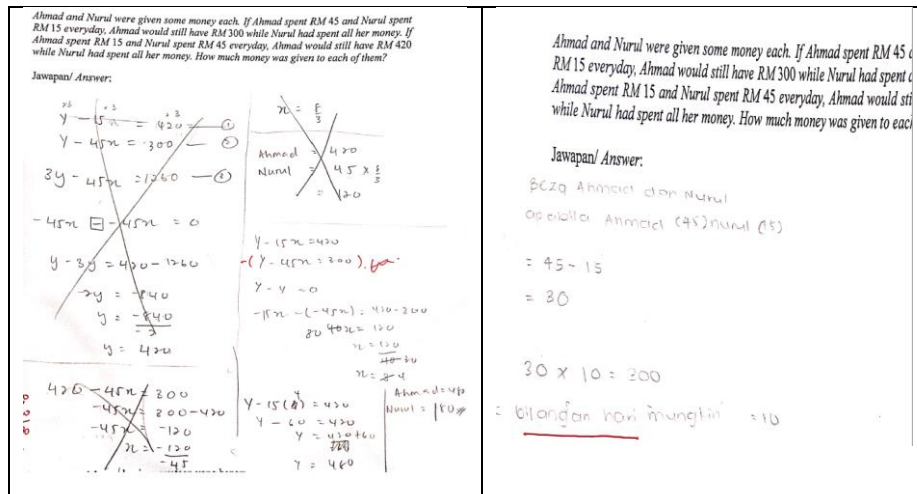 Ahmad and Nurul were given some money each. If Ahmad spent RM 45 and Nurul spent
RM 15 everyday, Ahmad would still have RM 300 while Nurul had spent all her money. If
Ahmad spent RM 15 and Nurul spent RM 45 everyday, Ahmad would still have RM 420
while Nurul had spent all her money. How much money was given to each of them?
Jawapan/ Answer:
×3 ×3 ×3
Y - 15x = 420 — ①
Y - 45x = 300 — ②
3y - 45x = 1260 — ③
-45x - -45x = 0
y - 3y = 420 - 1260
-2y = -840
y = -840
-2
y = 420
420 - 45x = 300
-45x = 300 - 420
-45x = -120
x = -120
-45
x = 8
3
Ahmad = 420
Nurul = 45 × 8/3
= 120
Y - 15x = 420
-(Y - 45x = 300)
Y - Y = 0
-15x - (-45x) = 420 - 300
30 x = 120
x = 120
30
x = 4
Y - 15(4) = 420
Y - 60 = 420
Y = 420 + 60
Y = 480
Ahmad = 480
Nurul = 180
Ahmad and Nurul were given some money each. If Ahmad spent RM 45
RM 15 everyday, Ahmad would still have RM 300 while Nurul had spent
Ahmad spent RM 15 and Nurul spent RM 45 everyday, Ahmad would
while Nurul had spent all her money. How much money was given to
Jawapan/ Answer:
Beza Ahmad dan Nurul
apabila Ahmad (45) nurul (15)
= 45 - 15
= 30
30 × 10 = 300
= bilangan hari mungkin = 10